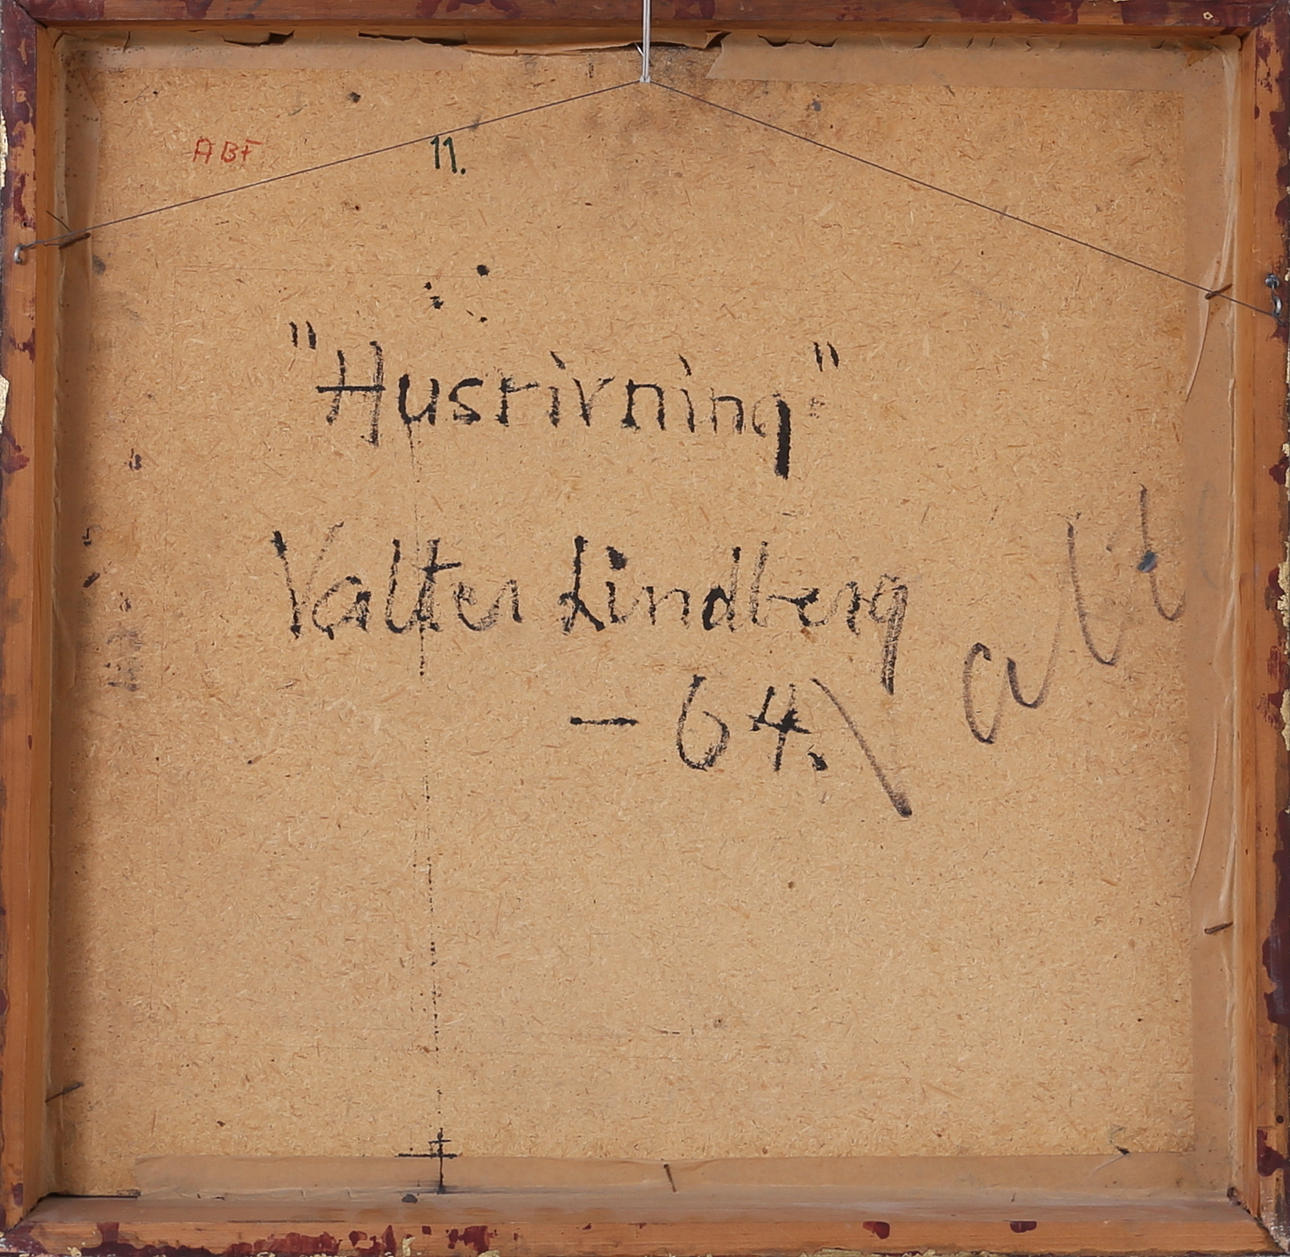 ABF
11.
"Husrivning"
Valter Lindberg
- 64.